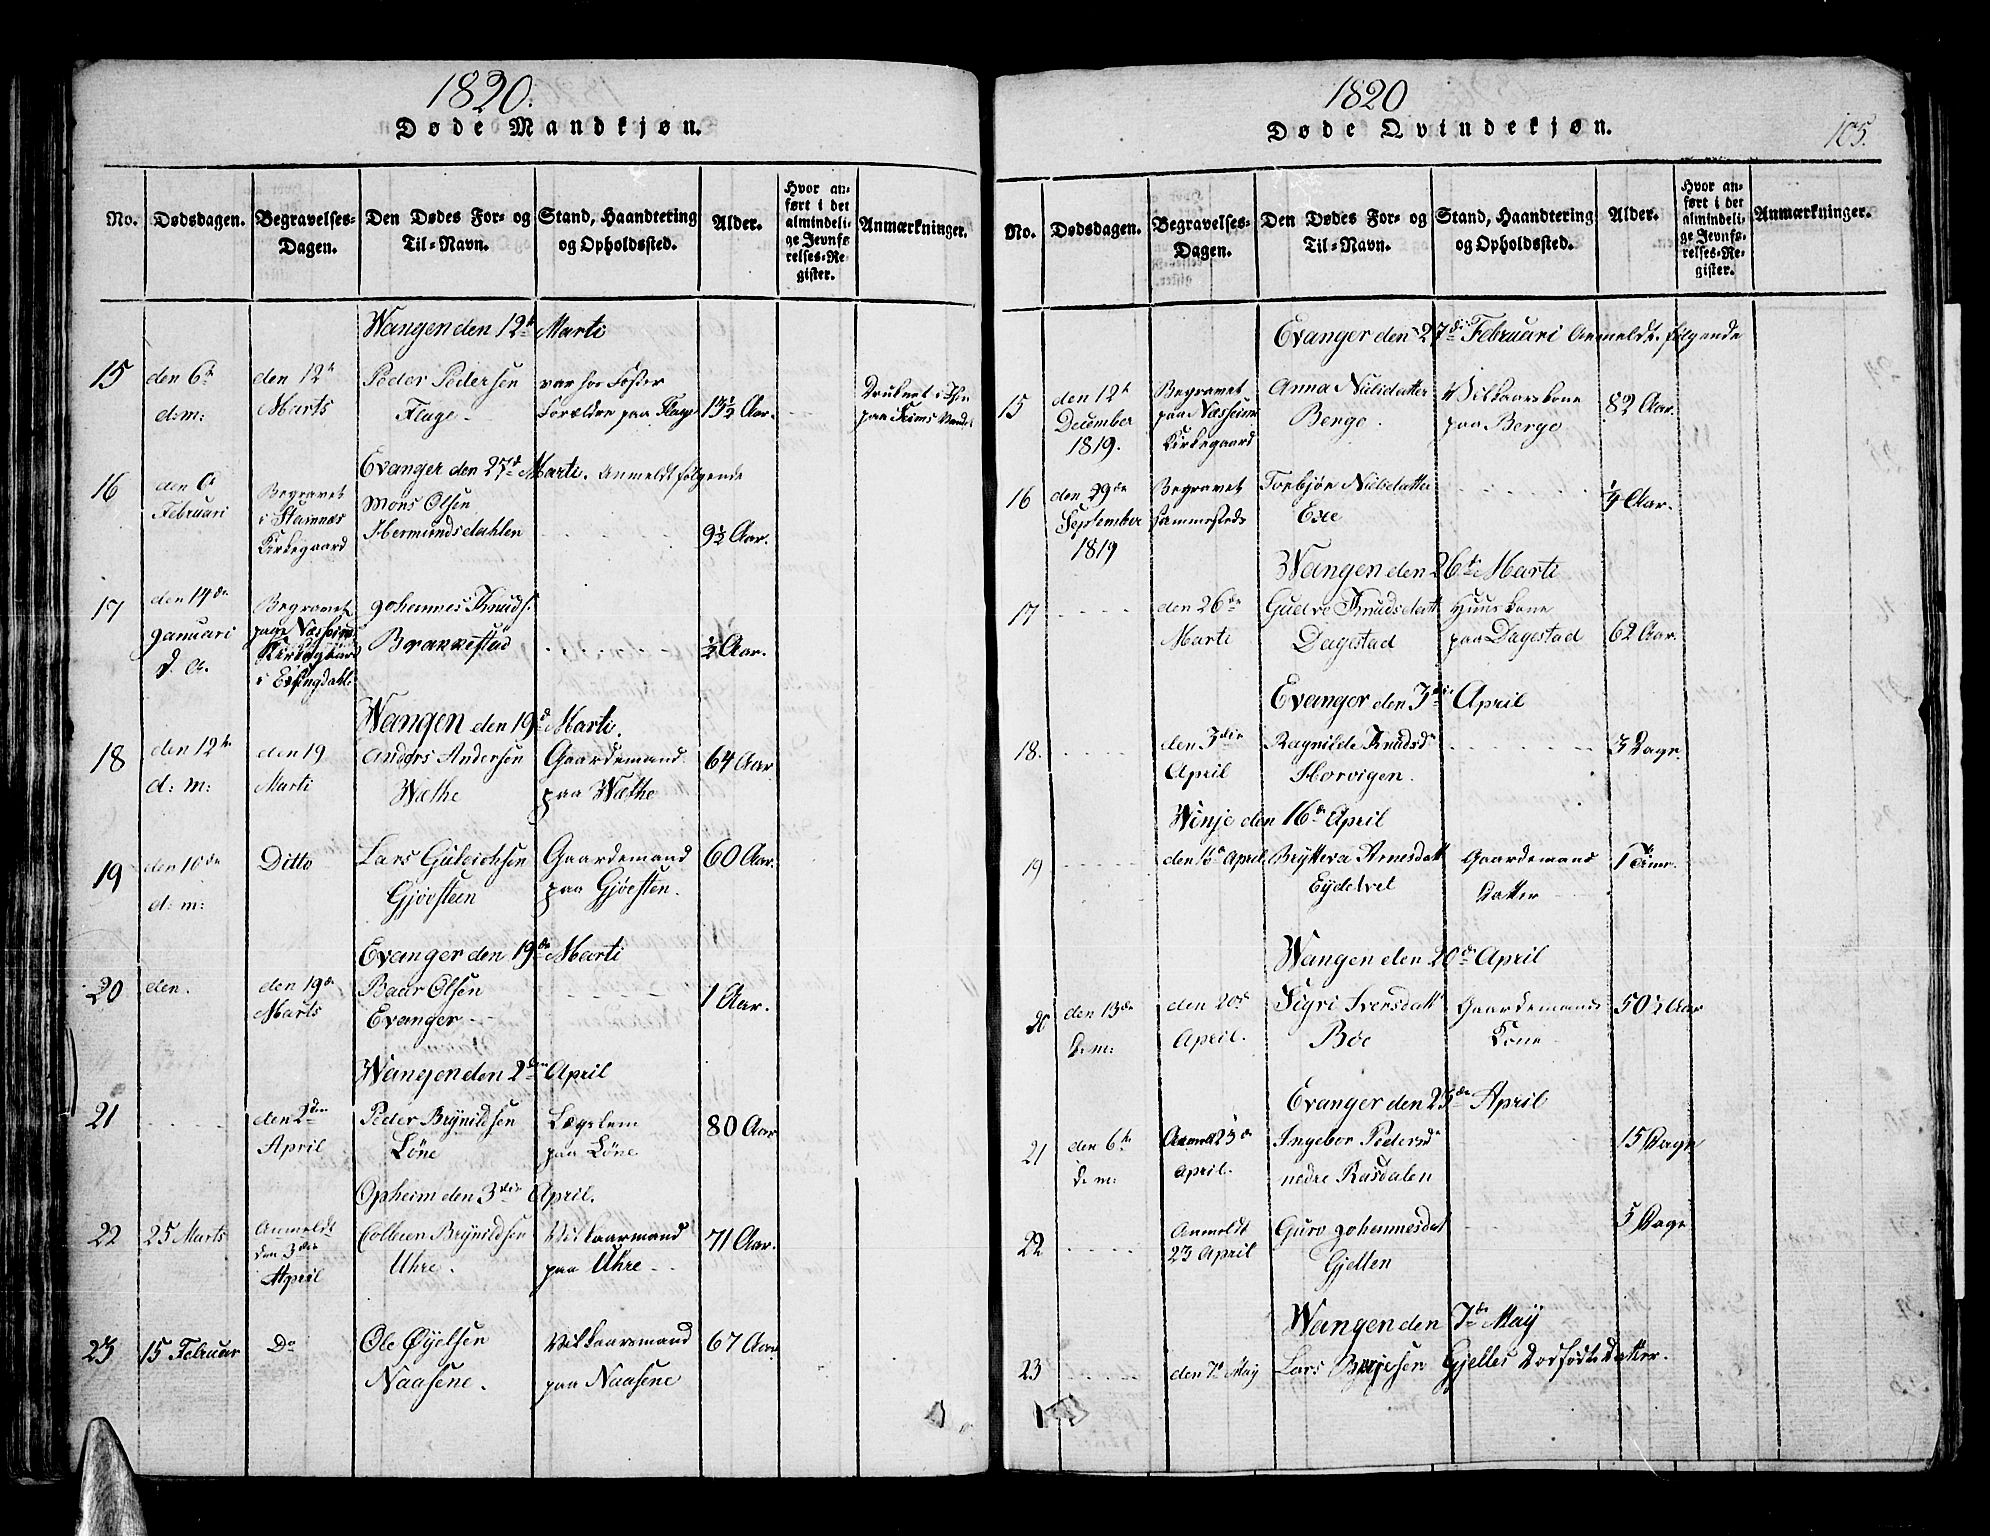 1820.
Døde Mandkjøn.
No.
Dødsdagen.
Begravelses-
Dagen.
Den Dødes For- og
Til-Navn.
Stand, Haandtering
og Opholdssted.
Alder.
Hvor an-
ført i det
almindeli-
ge Jevnfø-
relses-Re-
gister.
Anmærkninger.
Wangen den 12te Marti
15
den 6te
d: m:
den 12te
Marts
Peder Pedersen
Flage
var hos Foster
Forældre paa Flage
13½ Aar.
paa Seims Vandet
Evanger den 27de Marti. Anmeldt følgende
16
Februari
Begravet
i Stamnæs
Kirkegaard
Mons Olsen
Hermundsdahlen
9½ Aar.
17
den 14de
Januari
d. A.
Begravet
paa Næsheims
Kirkegaard
i Exingdahl
Johannes Knuds:
Brækkestad
½ Aar.
Wangen den 19de Marti.
18
den 12te
d: m:
den 19
Marti
Anders Andersen
Wæthe
Gaardemand
paa Wæthe
64 Aar
19
den 10de
d: m:
Ditto
Lars Gulleichsen
Gjøesteen
Gaardemand
paa Gjøesten.
60 Aar.
Evanger den 19de Marti
20
den.
den 19de
Marts
Baar Olsen
Evanger
1 Aar.
Wangen den 2den April
21
den 2den
April
Peder Brynildsen
Løne
Lægslem
paa Løne
80 Aar
Opheim den 3die April.
22
25 Marts
Anmeldt
den 3die
April
Colbein Brynildsen
Uhre.
Vilkaarmand
paa Uhre
71 Aar.
23
15 Februar
Do
Ole Øyelsen
Naasene.
Vilkaarsmand
paa Naasene
67 Aar
1820
Døde Qvindekjøn.
105.
No.
Dødsdagen.
Begravelses-
Dagen.
Den Dødes For- og
Til-Navn.
Stand, Haandtering
og Opholdssted.
Alder.
Hvor an-
ført i det
almindeli-
ge Jevnfø-
relses-Re-
gister.
Anmærkninger.
Evanger den 27de Februari Anmeldt følgende
15
den 12te
December
1819.
Begravet
paa Næsheims
Kirkegaard
Anna Nilsdatter
Berge.
Vilkaarskone
paa Berge
82 Aar.
16
den 29de
September
1819
Begravet
sammesteds
Torbjør Nilsdatter
Exe
¼ Aar.
Wangen den 26te Marti
17
den 26de
Marti
Gudve Knudsdatt
Dagestad
Huuskone
paa Dagestad
62 Aar.
Evanger den 3die April
18.
den 3die
April
Ragnilde Knudsdr
Horvigen.
3 Dage.
Winje den 16de April
19
den 16de April
Brytteva Arnesdatt
Eydetvel
Gaardemands
Datter
1 Time.
Wangen den 20de April
20
den 13de
d: m:
den 20de
April.
Sigri Iversdatt
Bøe
Gaardemands
Kone
50½ Aar
Evanger den 23de April
21
den 6te
d: m:
Anmeldt 23de
April.
Ingebor Pedersdr
nedre Rasdalen
15 Dage
22
Anmeldt
23 April
Guro Johannesdat
Gjelten
5 Dage
Wangen den 7de May
23
den 7de May
Lars Gjelles Dødfødte Datter.